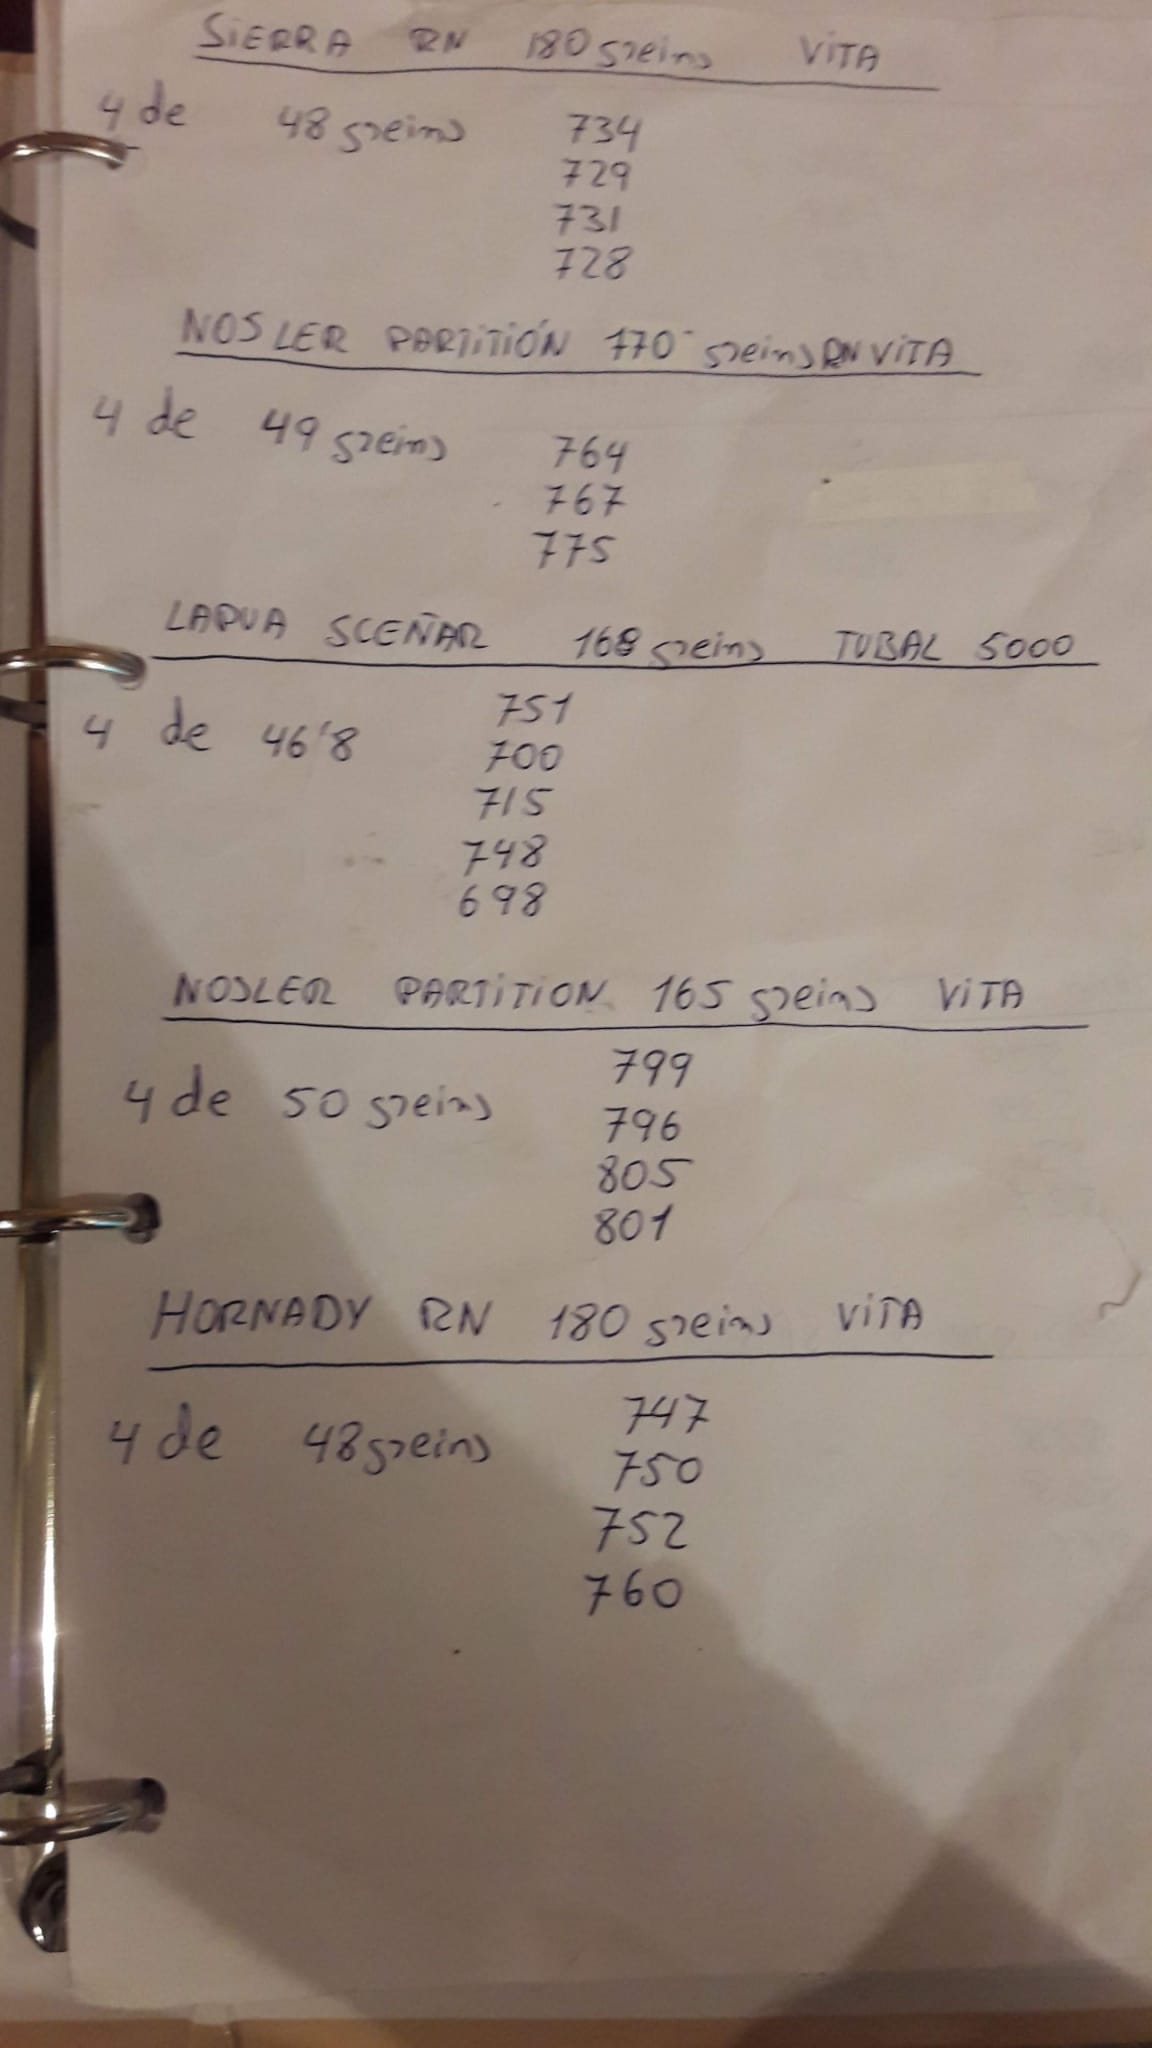 SiERRA RN 180 greins ViTA
4 de 48 greins 734
729
731
728
NOSLER PARTiTiÓN 170 greins RN ViTA
4 de 49 greins 764
767
775
LAPUA SCEÑAR 168 greins TUBAL 5000
4 de 46'8 751
700
715
748
698
NOSLER PARTiTiON 165 greins ViTA
4 de 50 greins 799
796
805
801
HORNADY RN 180 greins ViTA
4 de 48 greins 747
750
752
760